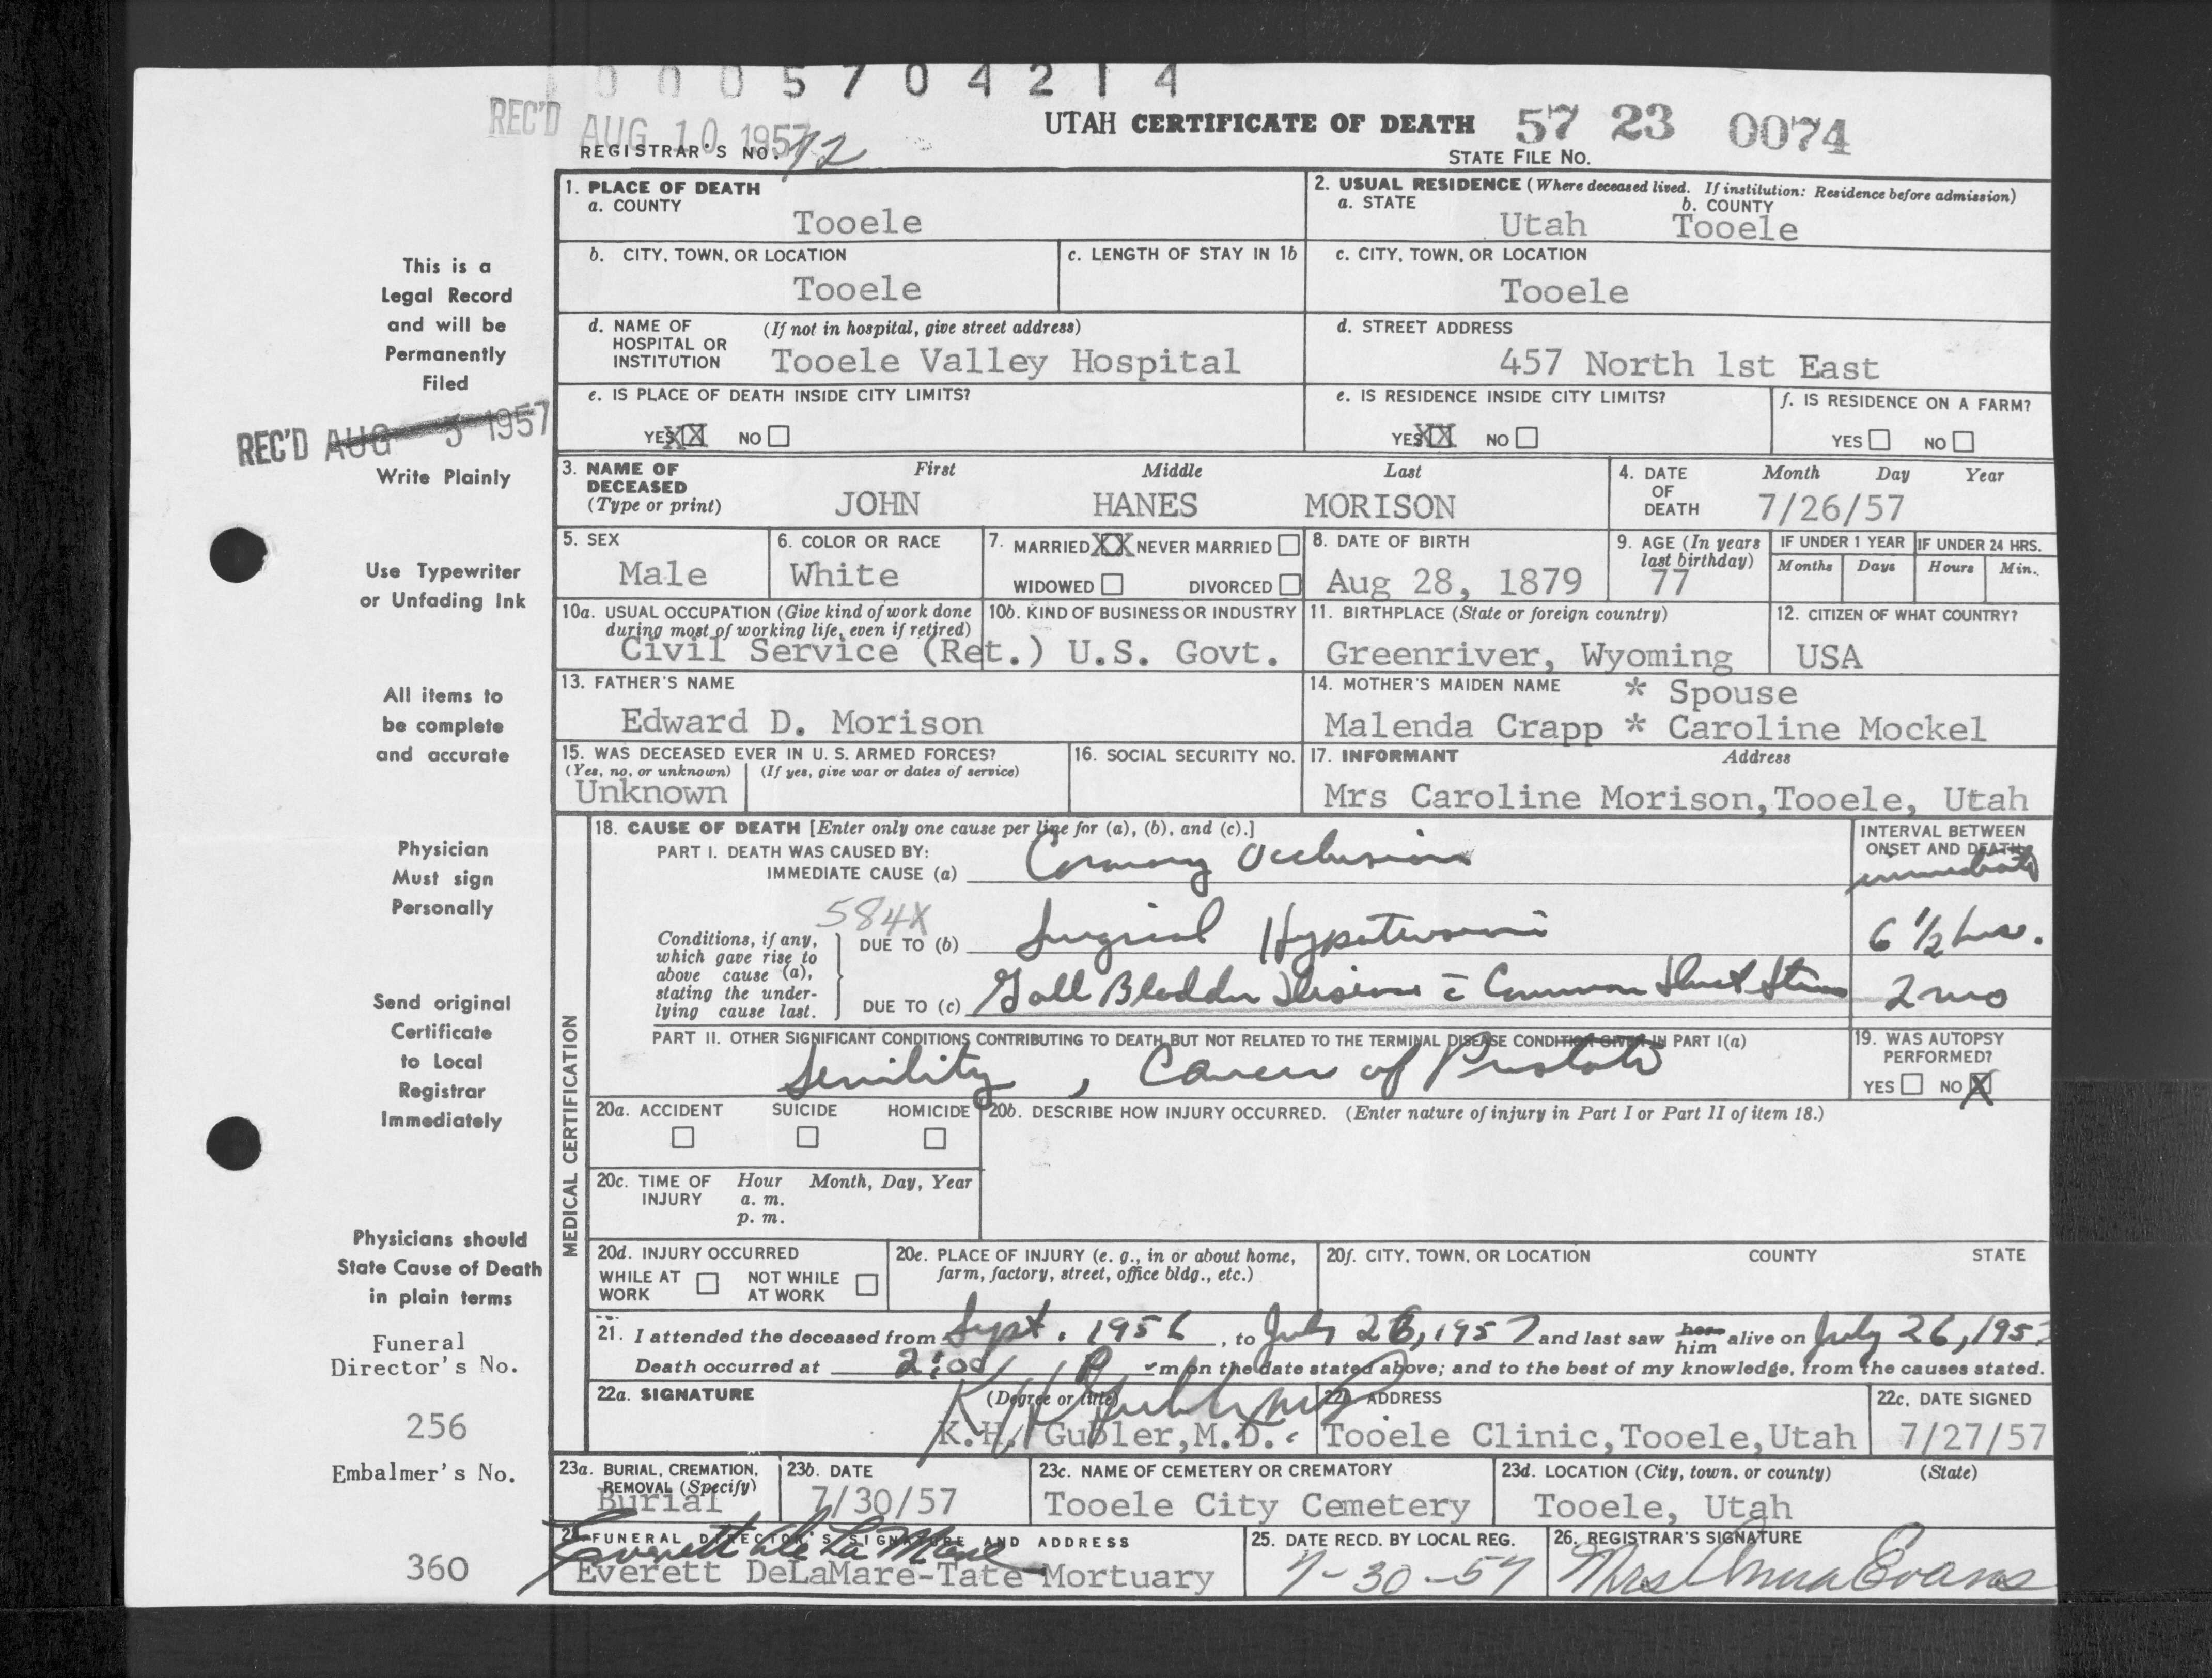 0005704214
REC'D AUG 10 1957
UTAH CERTIFICATE OF DEATH 57 23 0074
REGISTRAR'S NO. 72
STATE FILE NO.
This is a
Legal Record
and will be
Permanently
Filed
REC'D AUG 5 1957
Write Plainly
Use Typewriter
or Unfading Ink
All items to
be complete
and accurate
Physician
Must sign
Personally
Send original
Certificate
to Local
Registrar
Immediately
Physicians should
State Cause of Death
in plain terms
Funeral
Director's No.
256
Embalmer's No.
360
1. PLACE OF DEATH
a. COUNTY
Tooele
2. USUAL RESIDENCE (Where deceased lived. If institution: Residence before admission)
a. STATE b. COUNTY
Utah Tooele
b. CITY, TOWN, OR LOCATION
Tooele
c. LENGTH OF STAY IN 1b
c. CITY, TOWN, OR LOCATION
Tooele
d. NAME OF HOSPITAL OR INSTITUTION (If not in hospital, give street address)
Tooele Valley Hospital
d. STREET ADDRESS
457 North 1st East
e. IS PLACE OF DEATH INSIDE CITY LIMITS?
YES XX NO
e. IS RESIDENCE INSIDE CITY LIMITS?
YES XX NO
f. IS RESIDENCE ON A FARM?
YES NO
3. NAME OF DECEASED (Type or print) First Middle Last
JOHN HANES MORISON
4. DATE OF DEATH Month Day Year
7/26/57
5. SEX
Male
6. COLOR OR RACE
White
7. MARRIED XX NEVER MARRIED
WIDOWED DIVORCED
8. DATE OF BIRTH
Aug 28, 1879
9. AGE (In years last birthday)
77
IF UNDER 1 YEAR IF UNDER 24 HRS.
Months Days Hours Min.
10a. USUAL OCCUPATION (Give kind of work done during most of working life, even if retired)
Civil Service (Ret.)
10b. KIND OF BUSINESS OR INDUSTRY
U.S. Govt.
11. BIRTHPLACE (State or foreign country)
Greenriver, Wyoming
12. CITIZEN OF WHAT COUNTRY?
USA
13. FATHER'S NAME
Edward D. Morison
14. MOTHER'S MAIDEN NAME * Spouse
Malenda Crapp * Caroline Mockel
15. WAS DECEASED EVER IN U. S. ARMED FORCES?
(Yes, no, or unknown) (If yes, give war or dates of service)
Unknown
16. SOCIAL SECURITY NO.
17. INFORMANT Address
Mrs Caroline Morison, Tooele, Utah
MEDICAL CERTIFICATION
18. CAUSE OF DEATH [Enter only one cause per line for (a), (b), and (c).]
INTERVAL BETWEEN ONSET AND DEATH
PART I. DEATH WAS CAUSED BY:
IMMEDIATE CAUSE (a) Coronary Occlusion immediate
584X
Conditions, if any, which gave rise to above cause (a), stating the underlying cause last.
DUE TO (b) Surgical Hypotension 6 1/2 hrs.
DUE TO (c) Gall Bladder Disease c̄ Common Duct Stone 2 mo
PART II. OTHER SIGNIFICANT CONDITIONS CONTRIBUTING TO DEATH BUT NOT RELATED TO THE TERMINAL DISEASE CONDITION GIVEN IN PART I(a)
Senility, Cancer of Prostate
19. WAS AUTOPSY PERFORMED?
YES NO X
20a. ACCIDENT SUICIDE HOMICIDE
20b. DESCRIBE HOW INJURY OCCURRED. (Enter nature of injury in Part I or Part II of item 18.)
20c. TIME OF INJURY Hour Month, Day, Year
a. m.
p. m.
20d. INJURY OCCURRED
WHILE AT WORK NOT WHILE AT WORK
20e. PLACE OF INJURY (e. g., in or about home, farm, factory, street, office bldg., etc.)
20f. CITY, TOWN, OR LOCATION COUNTY STATE
21. I attended the deceased from Sept. 1956, to July 26, 1957 and last saw her him alive on July 26, 1957
Death occurred at 2:00 P m on the date stated above; and to the best of my knowledge, from the causes stated.
22a. SIGNATURE (Degree or title)
K H Gubler MD
K.H. Gubler, M.D.
22b. ADDRESS
Tooele Clinic, Tooele, Utah
22c. DATE SIGNED
7/27/57
23a. BURIAL, CREMATION, REMOVAL (Specify)
Burial
23b. DATE
7/30/57
23c. NAME OF CEMETERY OR CREMATORY
Tooele City Cemetery
23d. LOCATION (City, town, or county) (State)
Tooele, Utah
24. FUNERAL DIRECTOR'S SIGNATURE AND ADDRESS
Everett De La Mare
Everett DeLaMare-Tate Mortuary
25. DATE RECD. BY LOCAL REG.
7-30-57
26. REGISTRAR'S SIGNATURE
Mrs Anna Evans